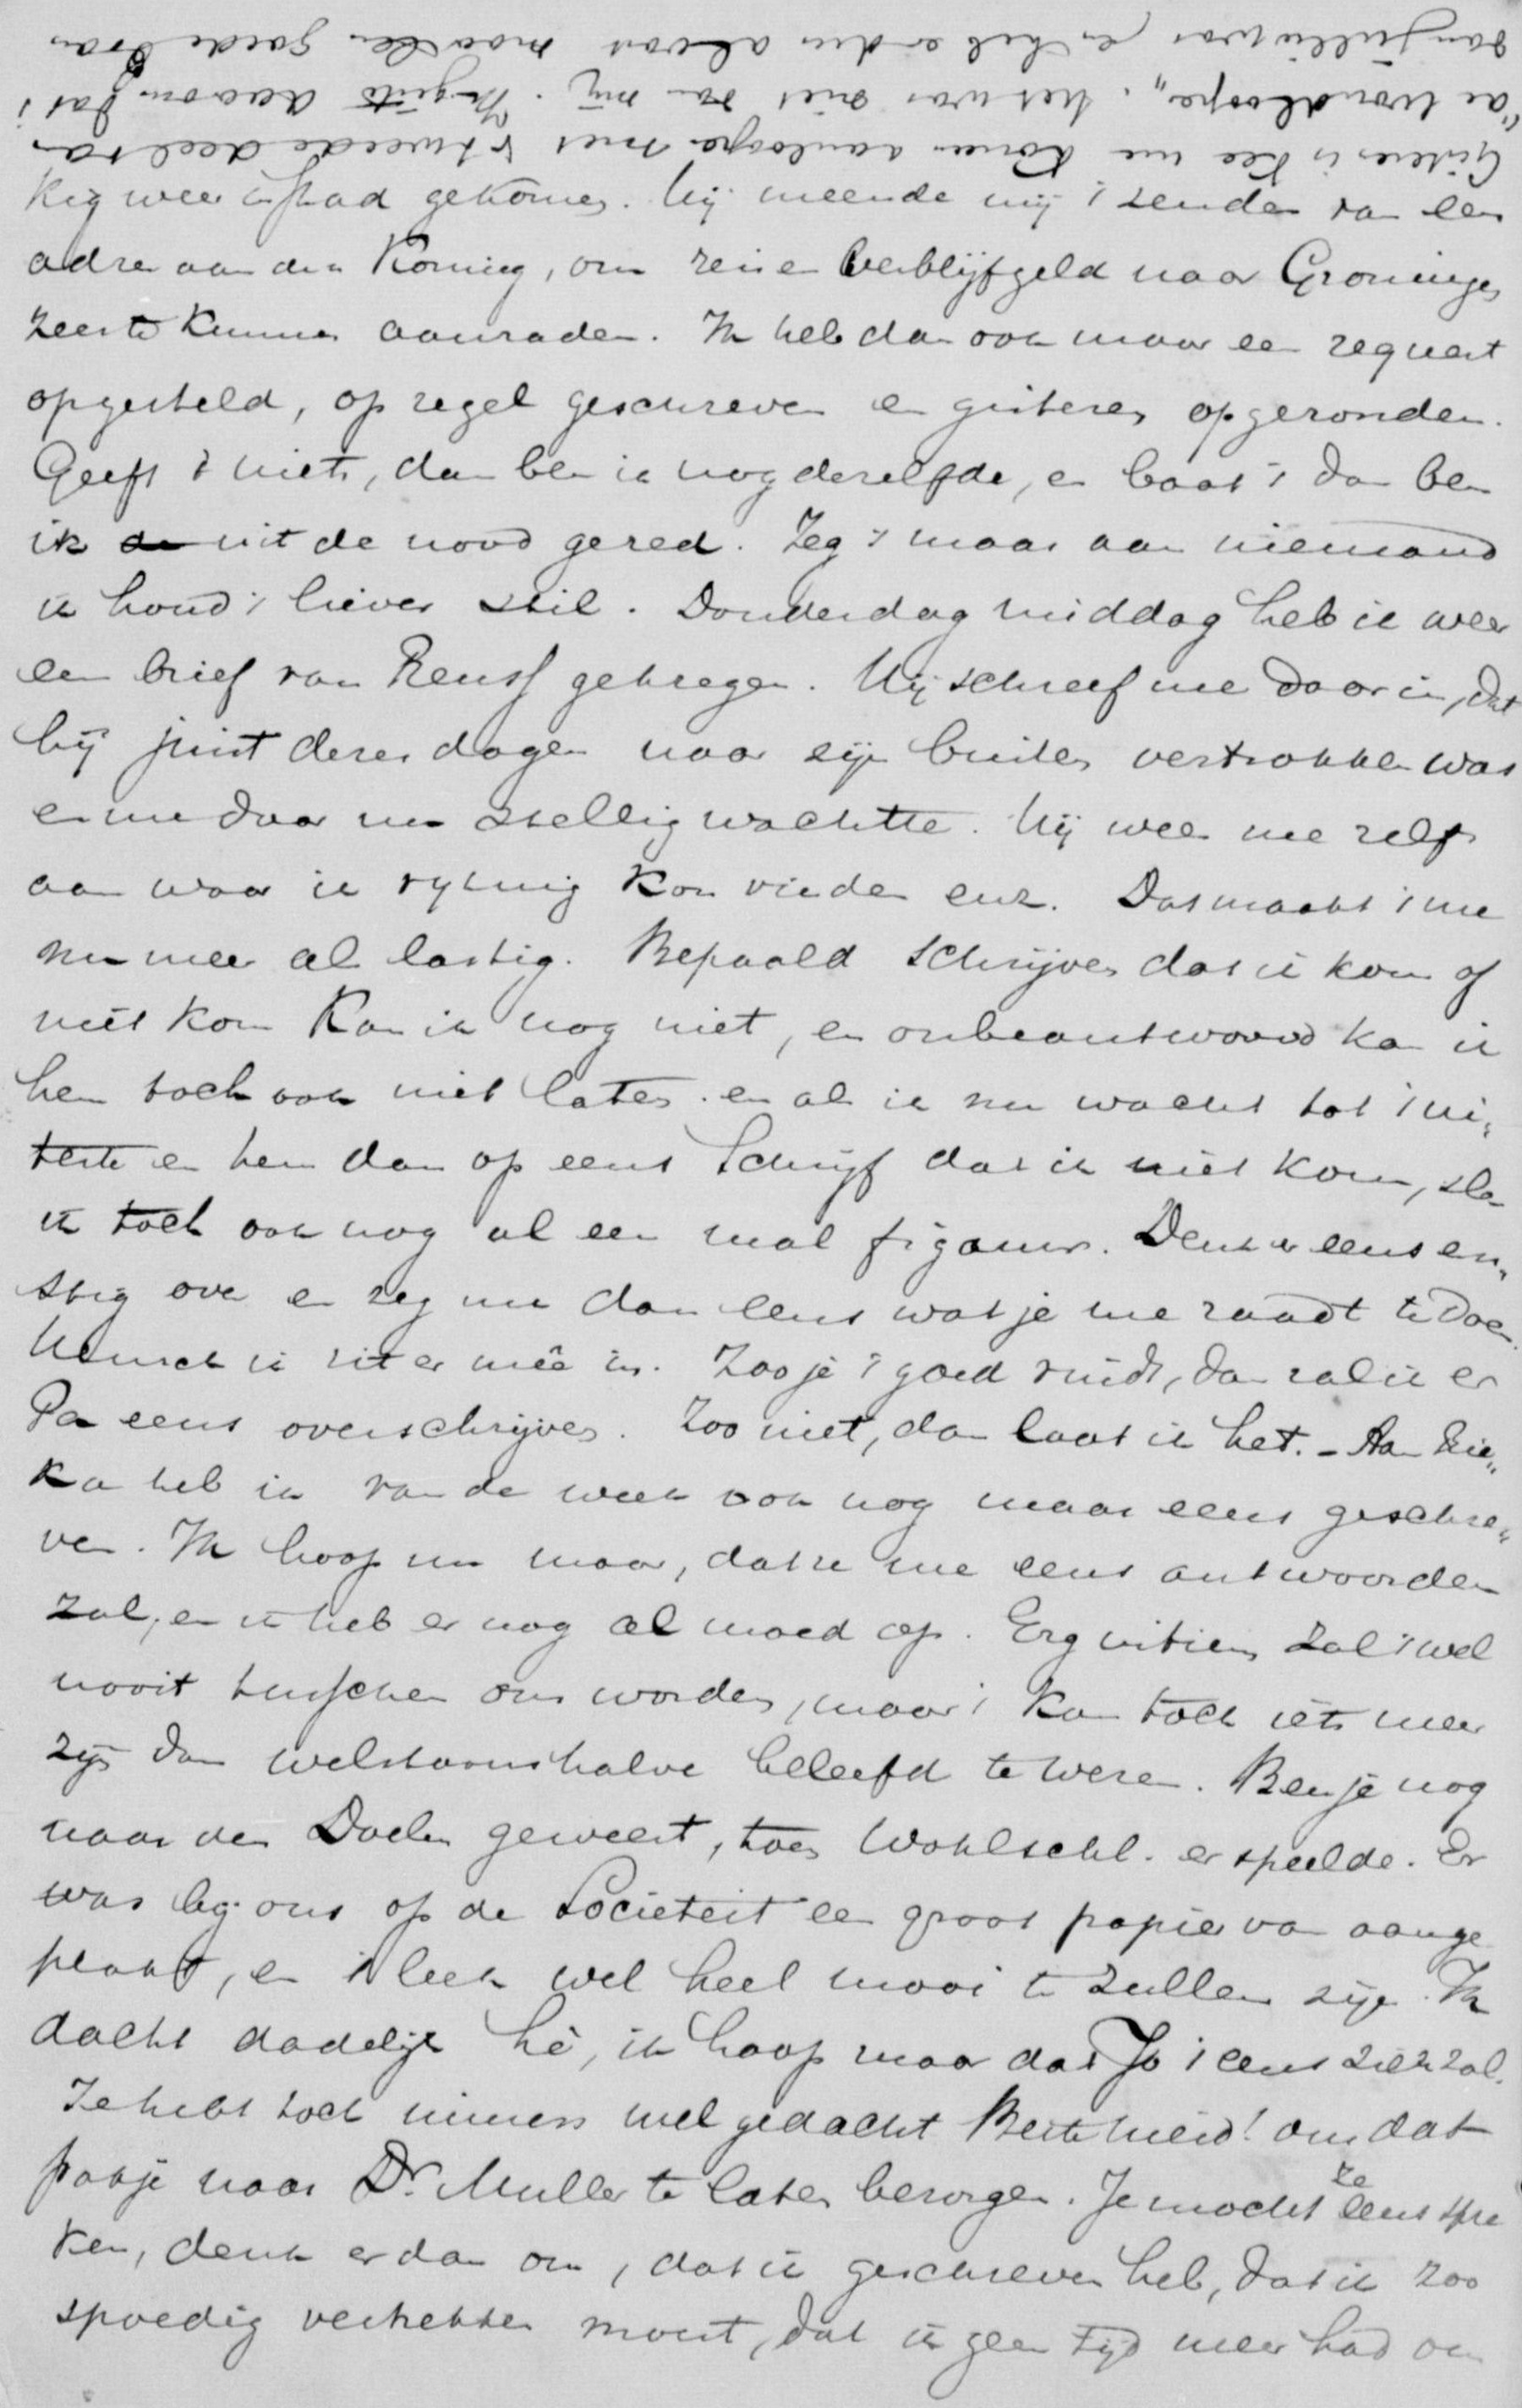 Gisteren is Kee me komen aanloopen met 't tweede deel van
"de Wandloope", het was niet van mij. Ik gis daarom dat 't
van jullie was en heb er dus alvast maar een goede bran
kig weer in stad gekomen. Hij meende mij 't zenden van een
adres aan den Koning, om reis en verblijfgeld naar Groningen
zeer te kunnen aanraden. Ik heb dan ook maar een request
opgesteld, op zegel geschreven en gisteren opgezonden.
Geeft 't niets, dan ben ik nog dezelfde, en baat 't dan ben
ik uit de nood gered. Zeg 't maar aan niemand
ik houd 't liever stil. Donderdag middag heb ik weer
een brief van Reuss gekregen. Hij schreef me daarin, dat
hij juist dezer dagen naar zijn buiten vertrokken was
en me daar nu stellig wachtte. Hij wees me zelfs
aan waar ik rijtuig kon vinden enz. Dat maakt 't me
nu weer al lastig. Bepaald schrijven dat ik kom of
niet kom kan ik nog niet, en onbeantwoord kan ik
hem toch ook niet laten. en als ik nu wacht tot 't ui,
terste en hem dan op eens schrijf dat ik niet kom, sla
ik toch ook nog al een mal figuur. Denk er eens ern,
stig over en zeg me dan eens wat je me raadt te doen.
Mensch ik zit er mêe in. Zoo je 't goed vindt, dan zal ik er
Pa eens overschrijven. Zoo niet, dan laat ik het. - Aan Rie"
ka heb ik van de week ook nog maar eens geschre"
ven. Ik hoop nu maar, dat ze me eens antwoorden
zal, en ik heb er nog al moed op. Erg intiem zal 't wel
nooit tusschen ons worden, maar 't kan toch iets meer
zijn dan welstaanshalve beleefd te wezen. Ben je nog
naar den Doelen geweest, toen Wohlschl. er speelde. Er
was bij ons op de Societeit een groot papier van aange
plakt, en 't leek wel heel mooi te zullen zijn. Ik
dacht dadelijk hè, ik hoop maar dat Jo 't eens zien zal.
Je hebt toch immers wel gedacht Beste meid! om dat
pakje naar Dr. Muller te laten bezorgen. Je mocht ze eens spre
ken, denk er dan om, dat ik geschreven heb, dat ik zoo
spoedig vertrekken moest, dat ik geen tijd meer had om